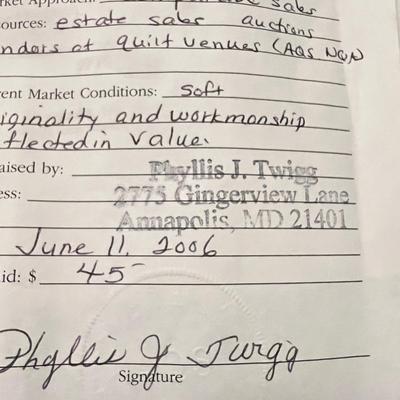 sales
ources: estate sales auctions
ndors at quilt venues (AQS NQA
ent Market Conditions: Soft
iginality and workmanship
flected in value.
aised by: Phyllis J. Twigg
ess: 2775 Gingerview Lane
Annapolis, MD 21401
June 11, 2006
id: $ 45
Phyllis J Twigg
Signature